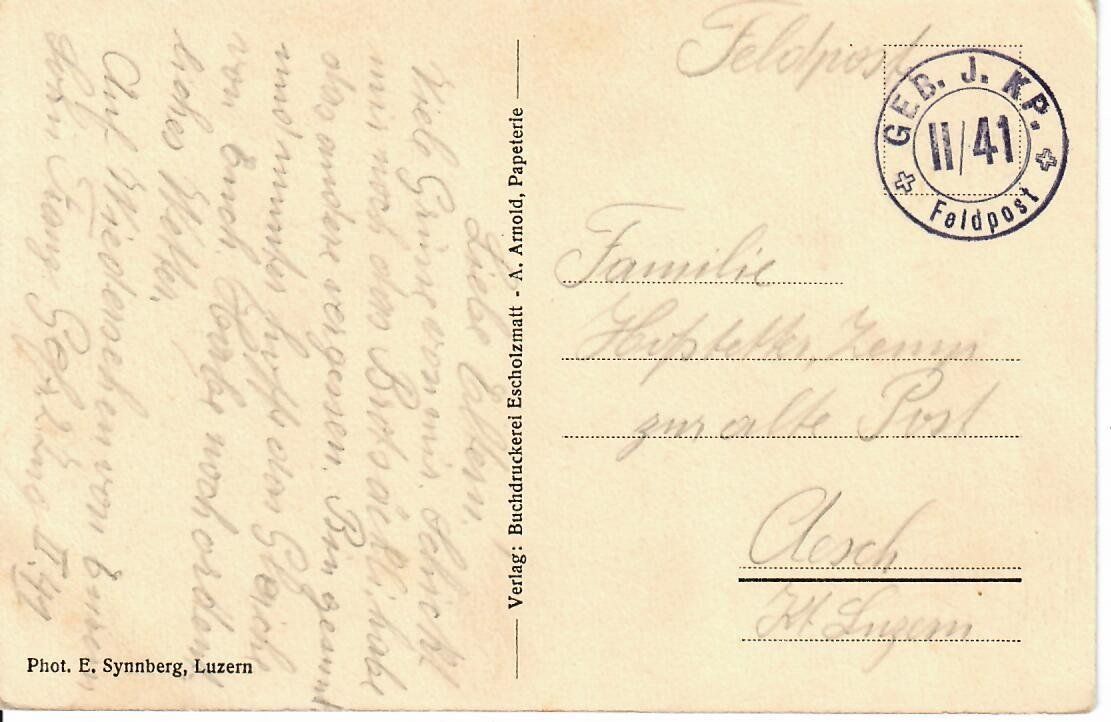 Feldpost
GEB. J. KP.
II/41
Feldpost
Familie
Hofstetter, Zemp
zur alte Post
Aesch
Kt Luzern
Verlag: Buchdruckerei Escholzmatt - A. Arnold, Papeterie
Phot. E. Synnberg, Luzern
Liebe Eltern.
Viele Grüsse von mir. schickt
mir noch den habe
das andere vergessen. Bin gesund
und munter hoffe das Gleich
von Euch.
Wetter.
Auf Wiedersehen von Euren
Sohn